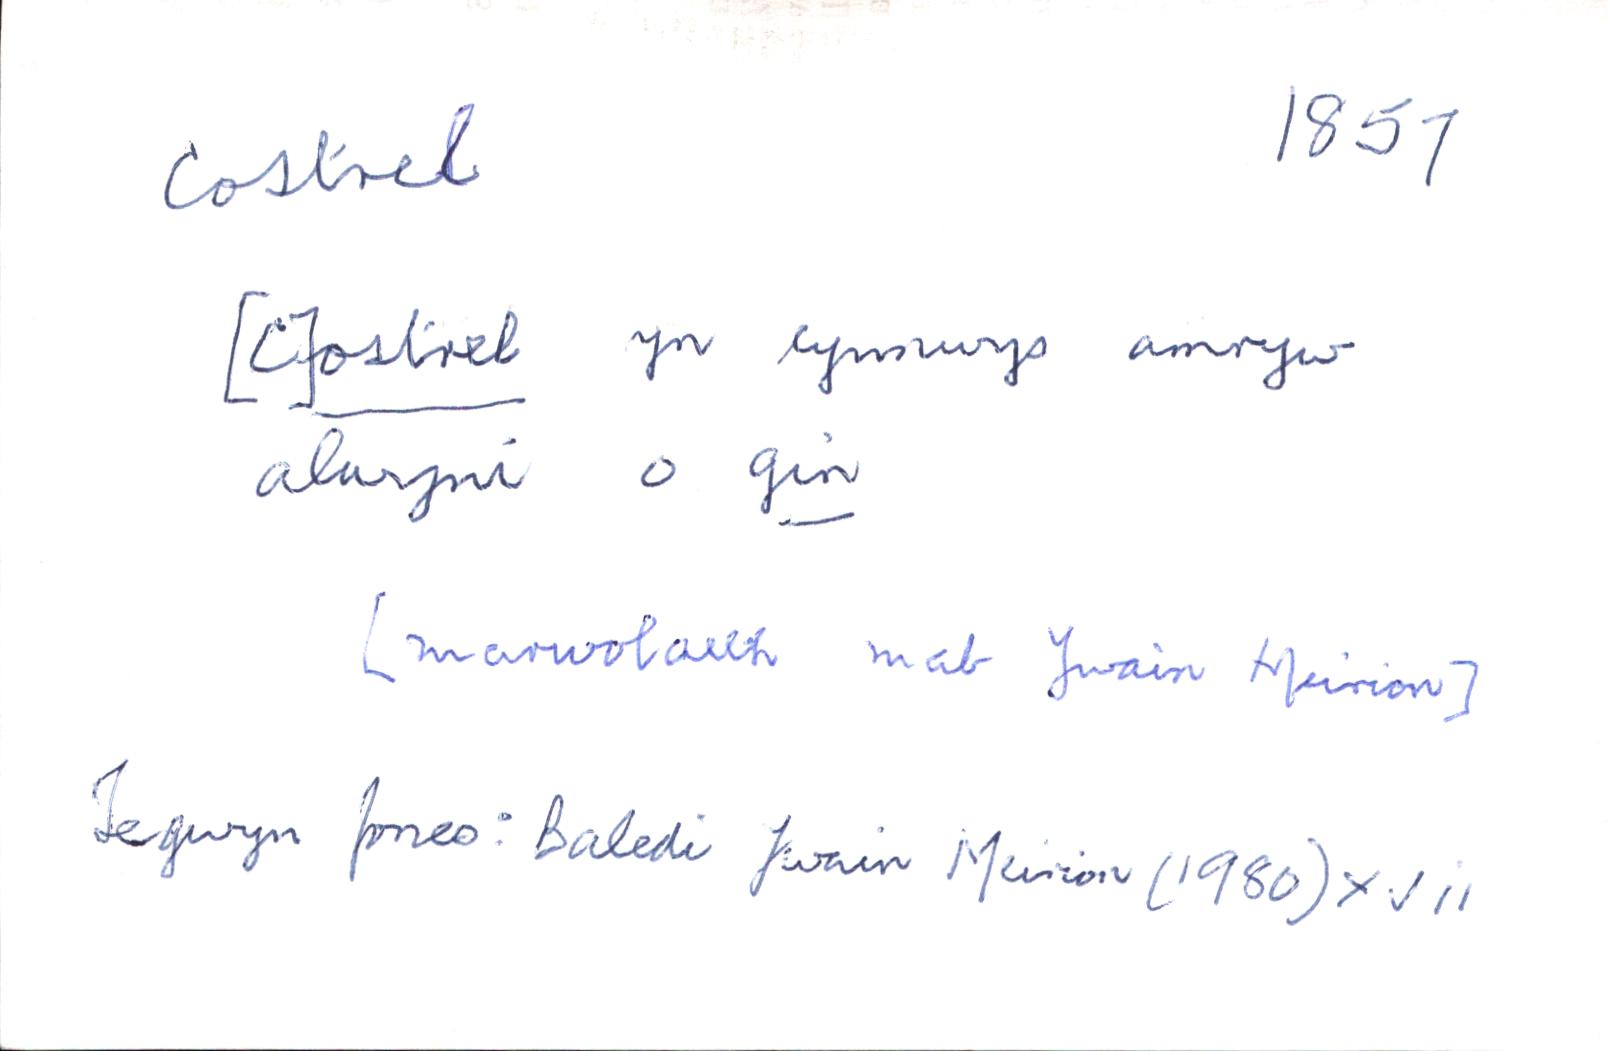 Costrel 1857
[C]ostrel yn cynnwys amryw
alwyni o gin
[marwolaeth mab Ywain Meirion]
Tegwyn Jones: Baledi Ywain Meirion (1980) xvii